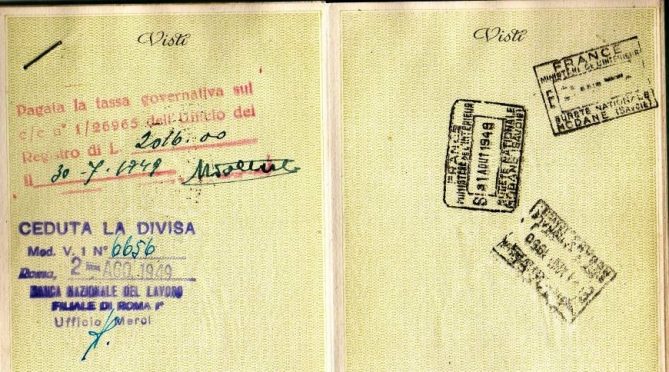 Visti
Pagata la tassa governativa sul
c/c n° 1/26965 dell'Ufficio del
Registro di L. 2016.00
il 30-7-1949
CEDUTA LA DIVISA
Mod. V. 1 N° 6656
Roma, 2 AGO. 1949
BANCA NAZIONALE DEL LAVORO
FILIALE DI ROMA
Ufficio Merci
Visti
FRANCE
MINISTÈRE DE L'INTÉRIEUR
SURETÉ NATIONALE
MODANE (SAVOIE)
FRANCE
MINISTÈRE DE L'INTÉRIEUR
S 31 AOUT 1949
SURETÉ NATIONALE
MODANE (SAVOIE)
1950